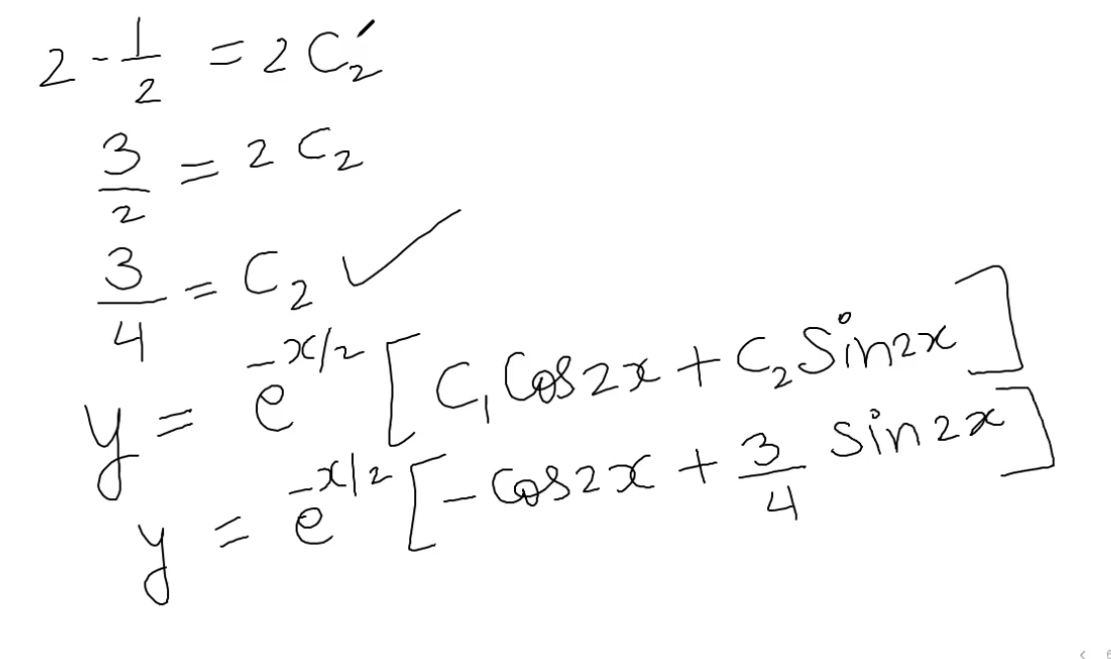 2 - 1/2 = 2 C₂'
3/2 = 2 C₂
3/4 = C₂ ✓
y = e^(-x/2) [ C₁ Cos 2x + C₂ Sin 2x ]
y = e^(-x/2) [ - Cos 2x + 3/4 Sin 2x ]